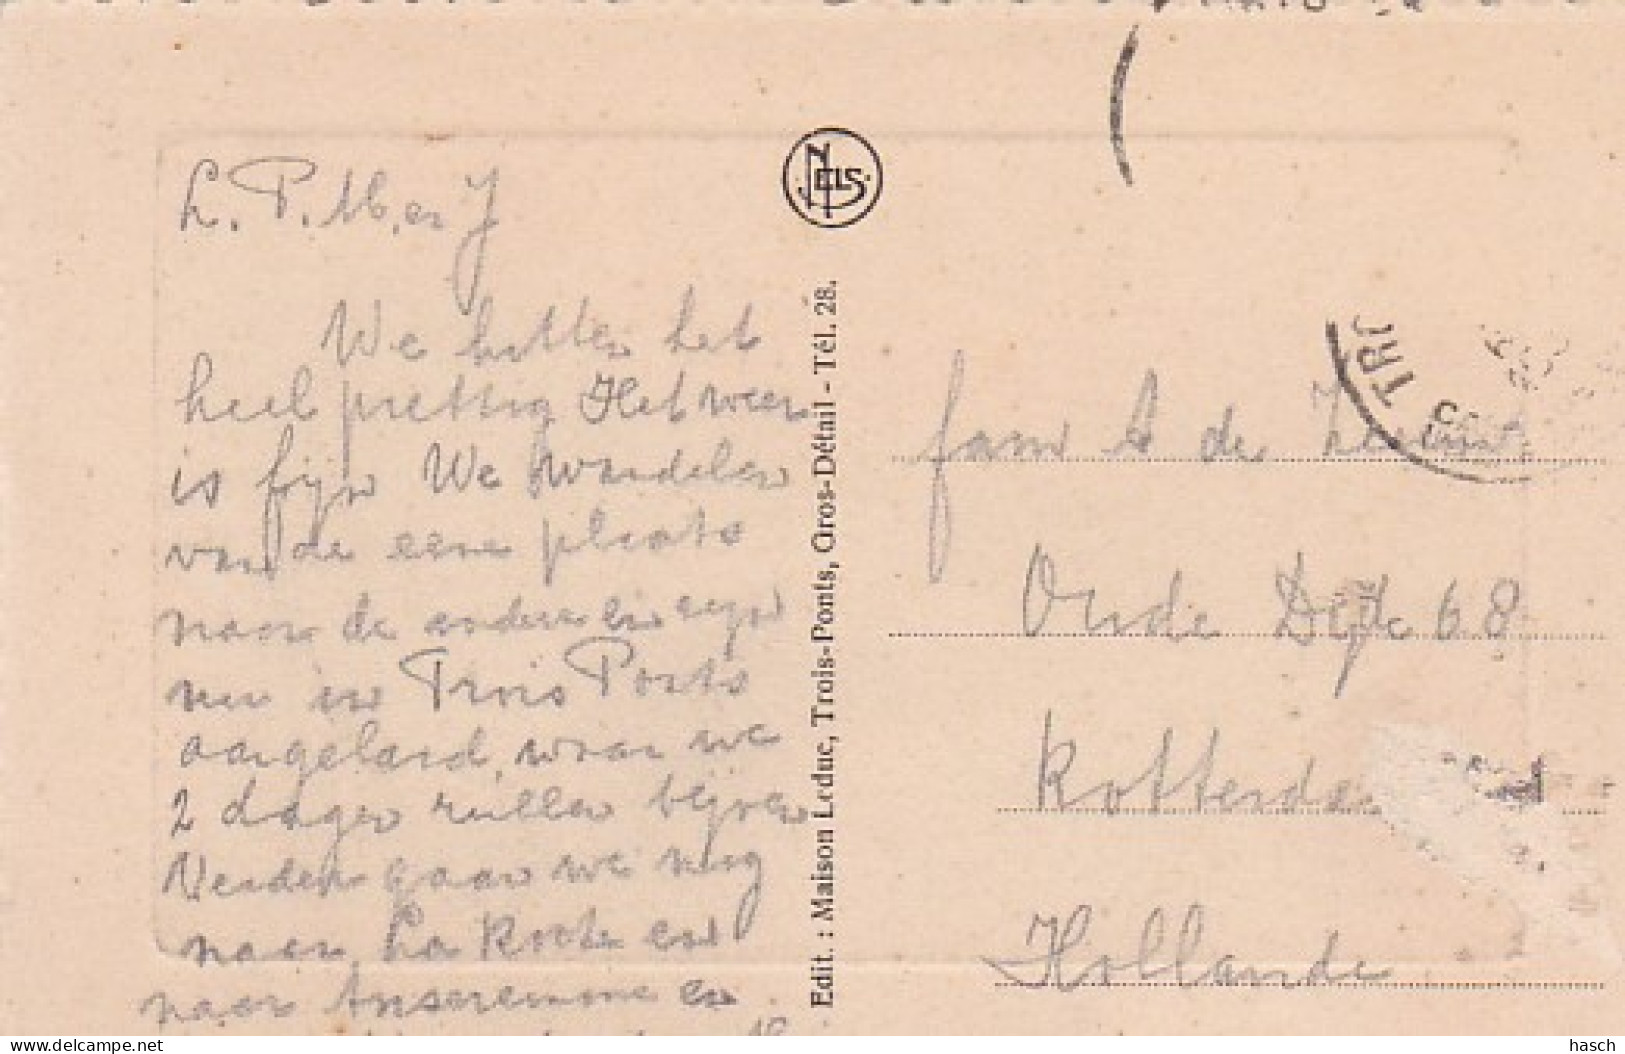 L. P. M. en J
We hebben het
heel prettig Het weer
is fijn We wandelen
van de eene plaats
naar de andere en zijn
nu in Trois Ponts
aangeland, waar we
2 dagen zullen blijven
Verder gaan we nog
naar La Roche en
naar Anseremme en
NELS
Edit. : Maison Leduc, Trois-Ponts, Gros-Détail - Tél. 28.
TRO
fam A de
Oude Dijk 68
Rotterdam
Hollande
delcampe.net
hasch